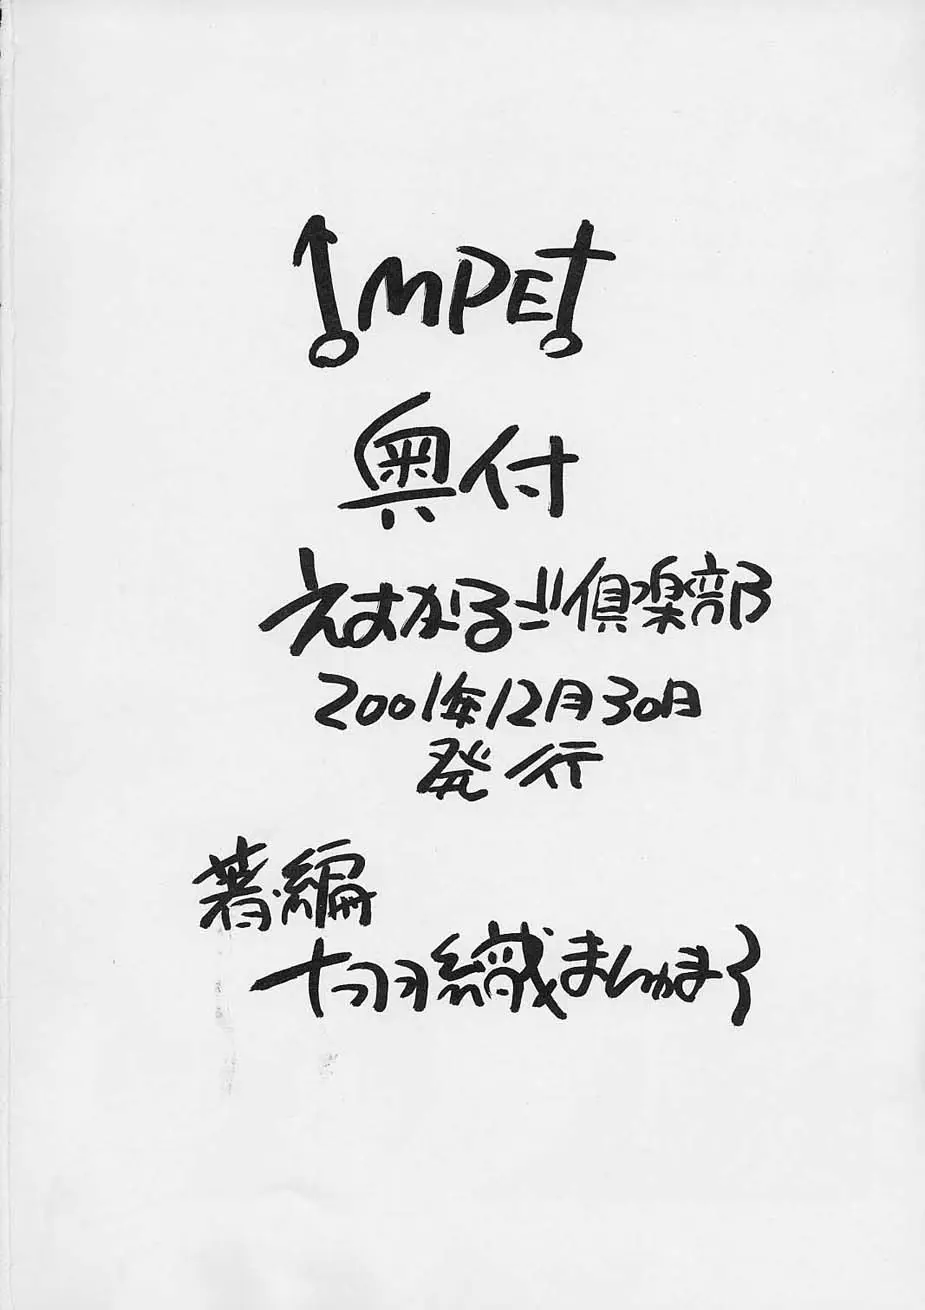 IMPEt
奥付
えすかるご倶楽部
2001年12月30日
発行
著・編
十羽織ましゅまろ